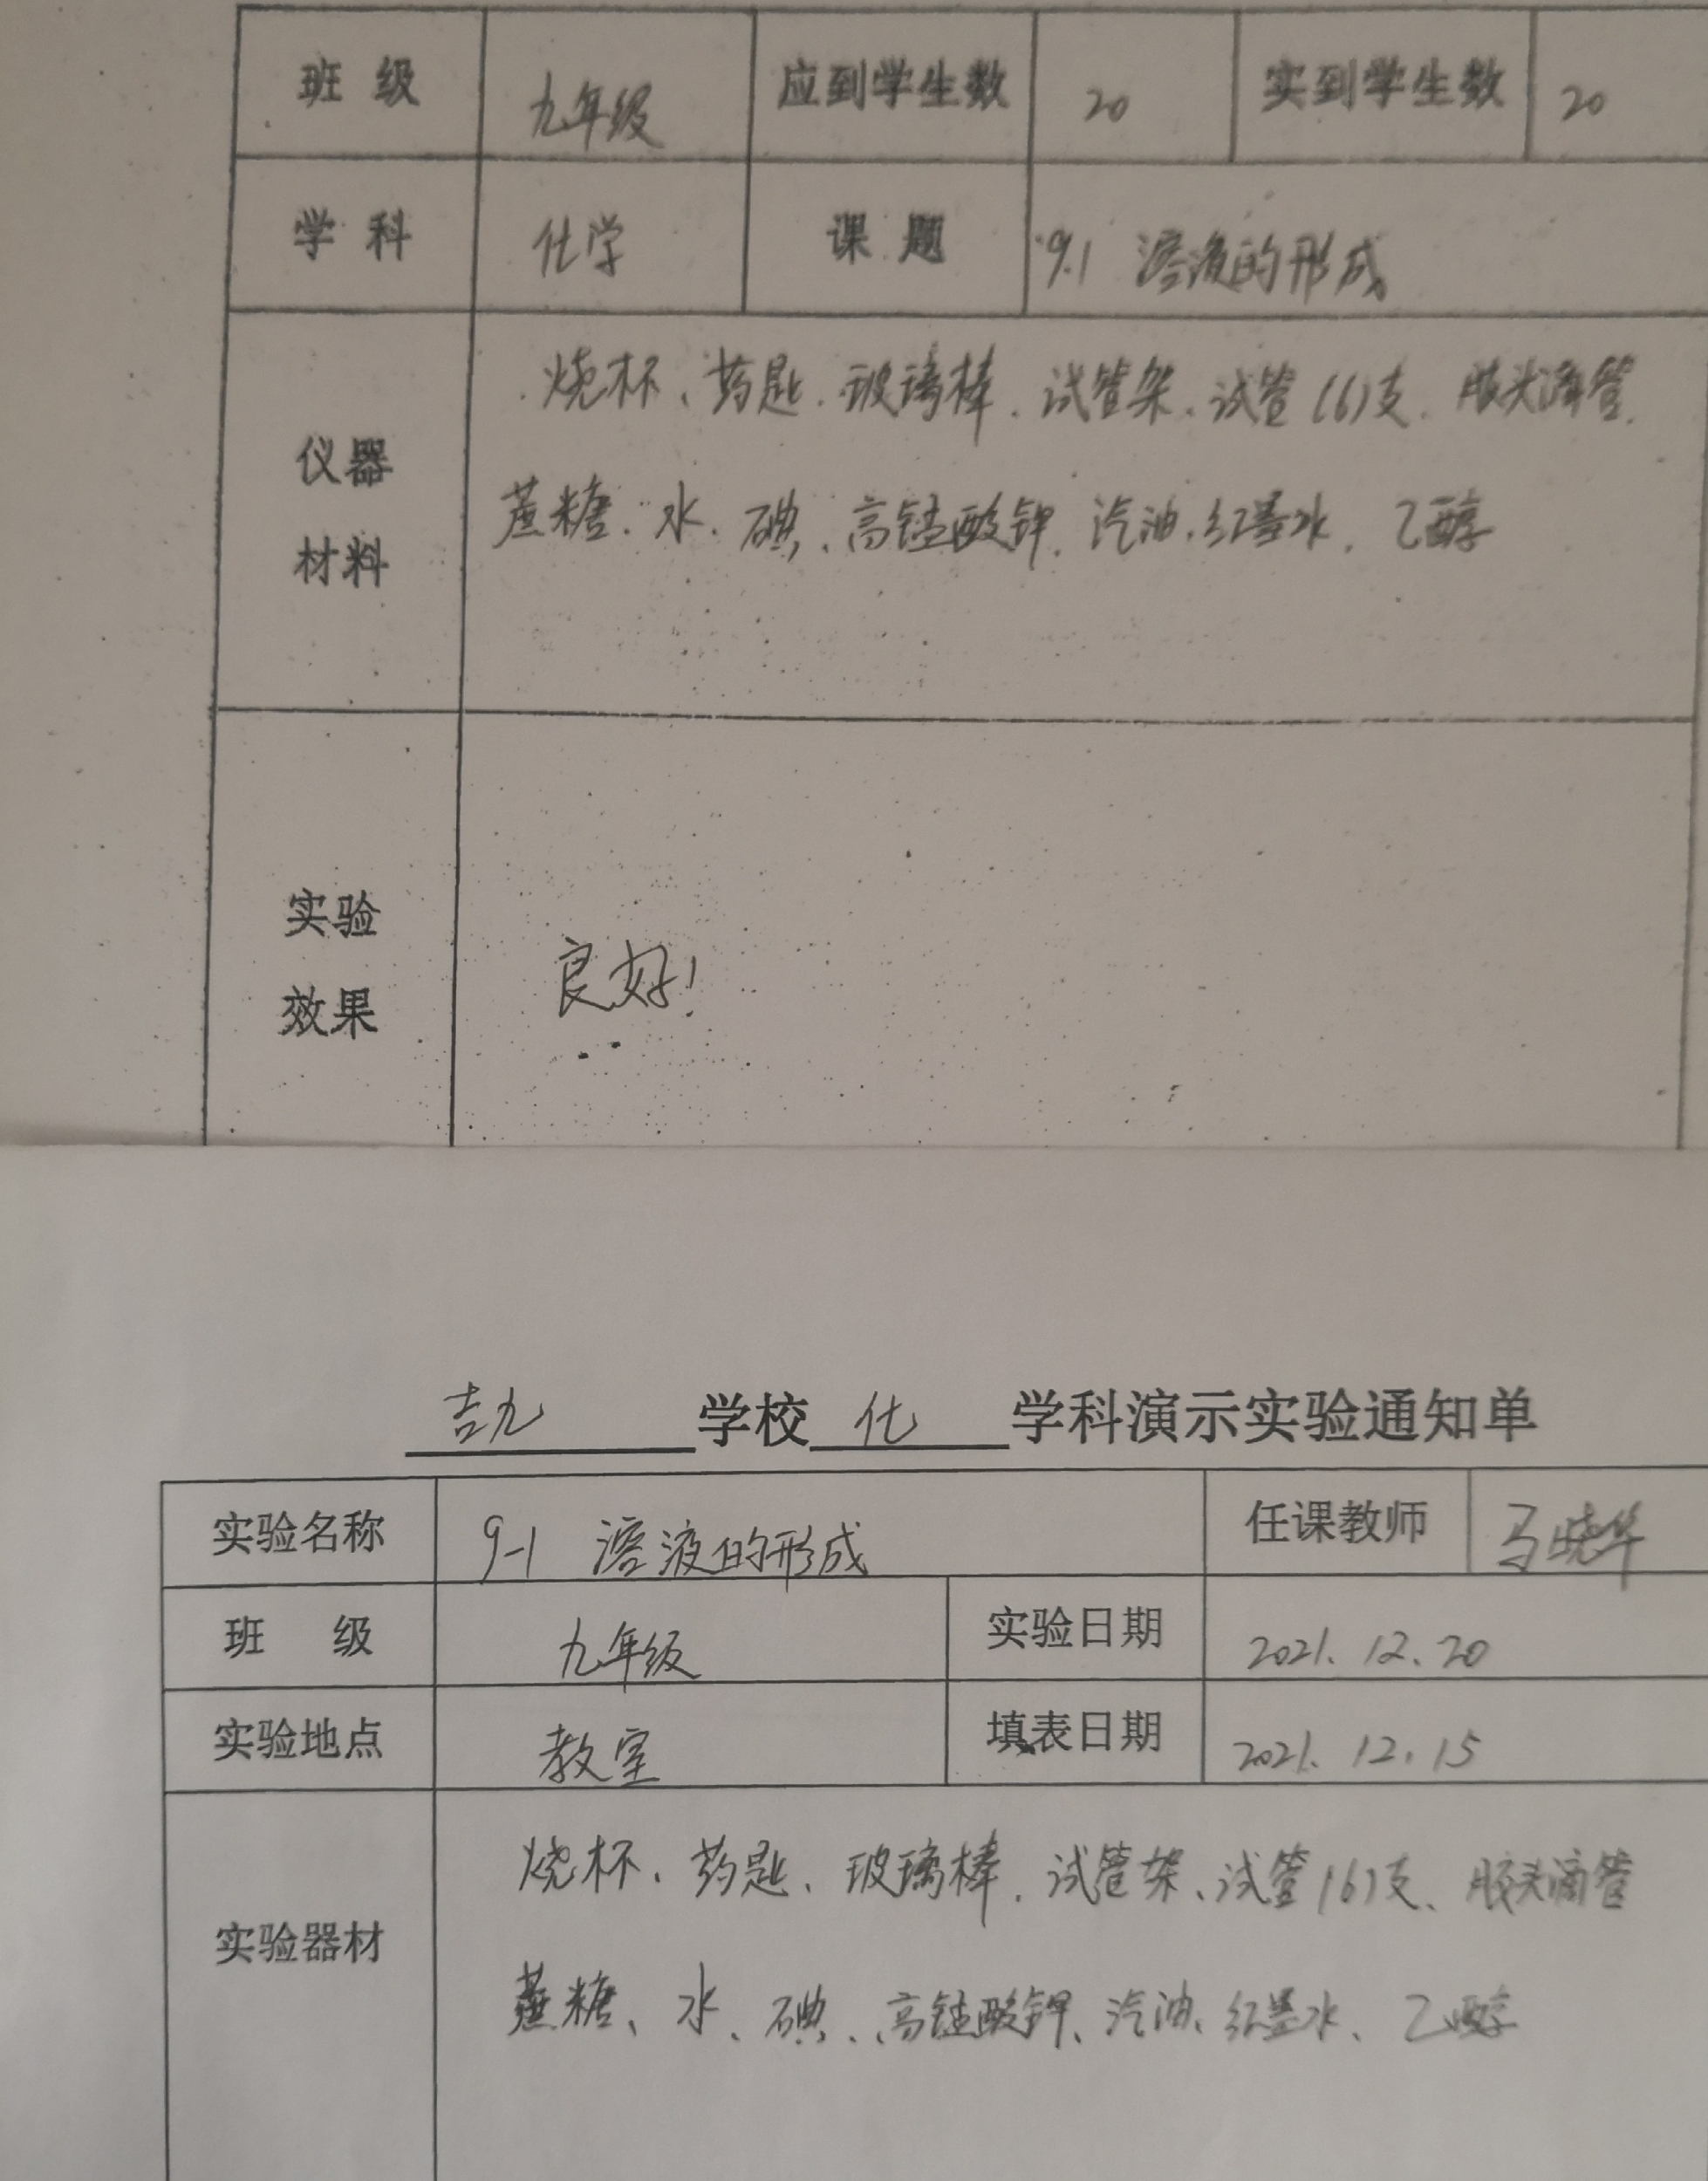 班 级 九年级 应到学生数 20 实到学生数 20
学 科 化学 课 题 9.1 溶液的形成
仪器
材料
烧杯、药匙、玻璃棒、试管架、试管(6)支、胶头滴管、
蔗糖、水、碘、高锰酸钾、汽油、红墨水、乙醇
实验
效果
良好!
吉九 学校 化 学科演示实验通知单
实验名称 9-1 溶液的形成 任课教师 马晓华
班 级 九年级 实验日期 2021.12.20
实验地点 教室 填表日期 2021.12.15
实验器材
烧杯、药匙、玻璃棒、试管架、试管(6)支、胶头滴管
蔗糖、水、碘、高锰酸钾、汽油、红墨水、乙醇